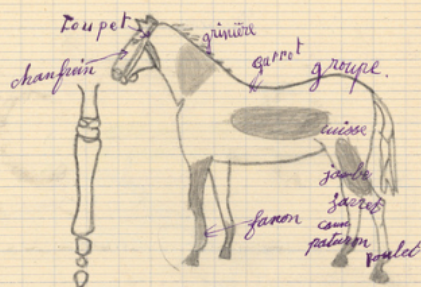 Toupet
chanfrein
garrot
groupe.
cuisse
jambe
jarret
fanon
paturon
boulet